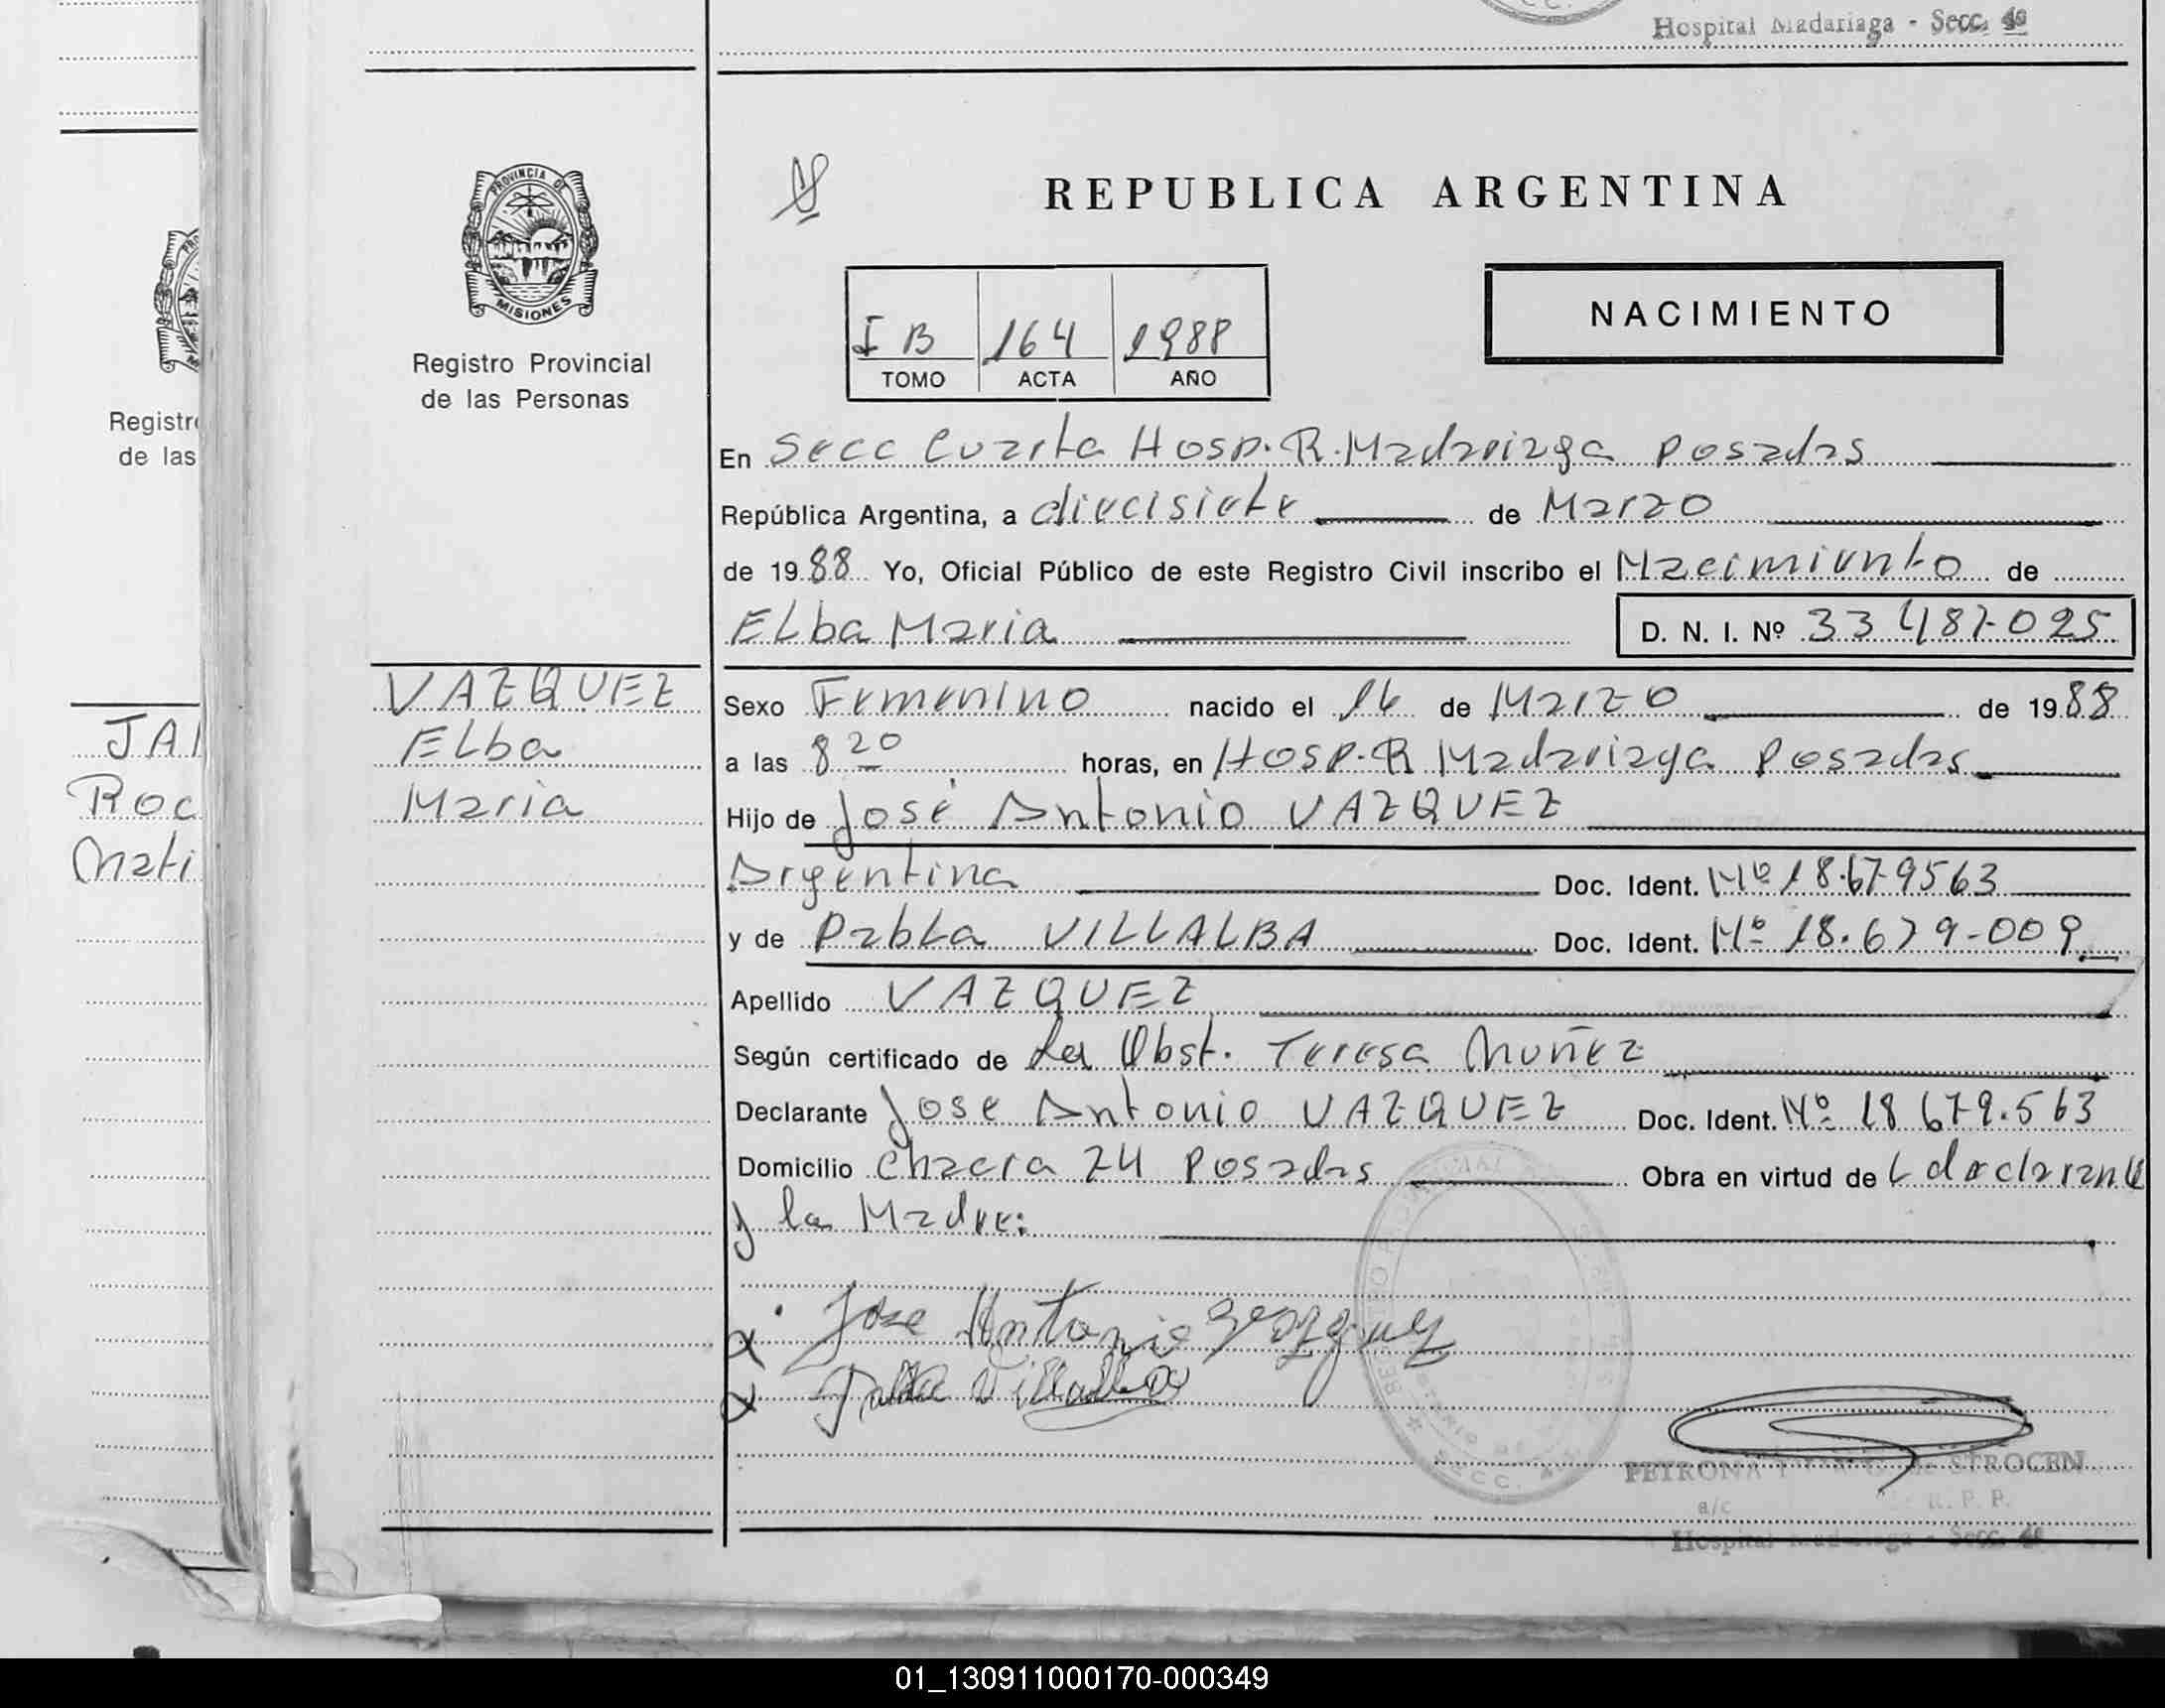 Hospital Madariaga - Secc. 4a
PROVINCIA DE
MISIONES
Registro Provincial
de las Personas
REPUBLICA ARGENTINA
NACIMIENTO
I B 164 1988
TOMO ACTA AÑO
En Secc Cuarta Hosp. R. Madariaga Posadas
República Argentina, a diecisiete de Marzo
de 1988 Yo, Oficial Público de este Registro Civil inscribo el Nacimiento de
Elba Maria D. N. I. Nº 33 487-025
Sexo Femenino nacido el 16 de Marzo de 1988
a las 8 20 horas, en Hosp. R Madariaga Posadas
Hijo de José Antonio VAZQUEZ
Argentina Doc. Ident. Nº 18.679563
y de Pabla VILLALBA Doc. Ident. Nº 18.679-009
Apellido VAZQUEZ
Según certificado de La Obst. Teresa Nuñez
Declarante Jose Antonio VAZQUEZ Doc. Ident. Nº 18 679.563
Domicilio Chacra 24 Posadas Obra en virtud de L declarante
y la Madre:
Jose Antonio
Villalba
PETRONA STROCEN
a/c R. P. P.
Hospital Madariaga - Secc. 4a
VAZQUEZ
Elba
Maria
Registr
de las
JA
Roc
Mati
SECC.
01_130911000170-000349